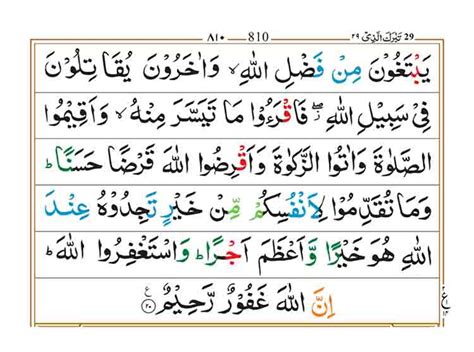 ٢٩ تَبٰرَكَ الَّذِیْ 29 810 ٨١٠
یَبْتَغُوْنَ مِنْ فَضْلِ اللّٰهِ ۙ وَاٰخَرُوْنَ یُقَاتِلُوْنَ
فِیْ سَبِیْلِ اللّٰهِ ۖ فَاقْرَءُوْا مَا تَیَسَّرَ مِنْهُ ۙ وَاَقِیْمُوا
الصَّلٰوةَ وَاٰتُوا الزَّكٰوةَ وَاَقْرِضُوا اللّٰهَ قَرْضًا حَسَنًا ؕ
وَمَا تُقَدِّمُوْا لِاَنْفُسِكُمْ مِّنْ خَیْرٍ تَجِدُوْهُ عِنْدَ
اللّٰهِ هُوَ خَیْرًا وَّاَعْظَمَ اَجْرًا ؕ وَاسْتَغْفِرُوا اللّٰهَ ؕ
اِنَّ اللّٰهَ غَفُوْرٌ رَّحِیْمٌ ۝٢٠ ع